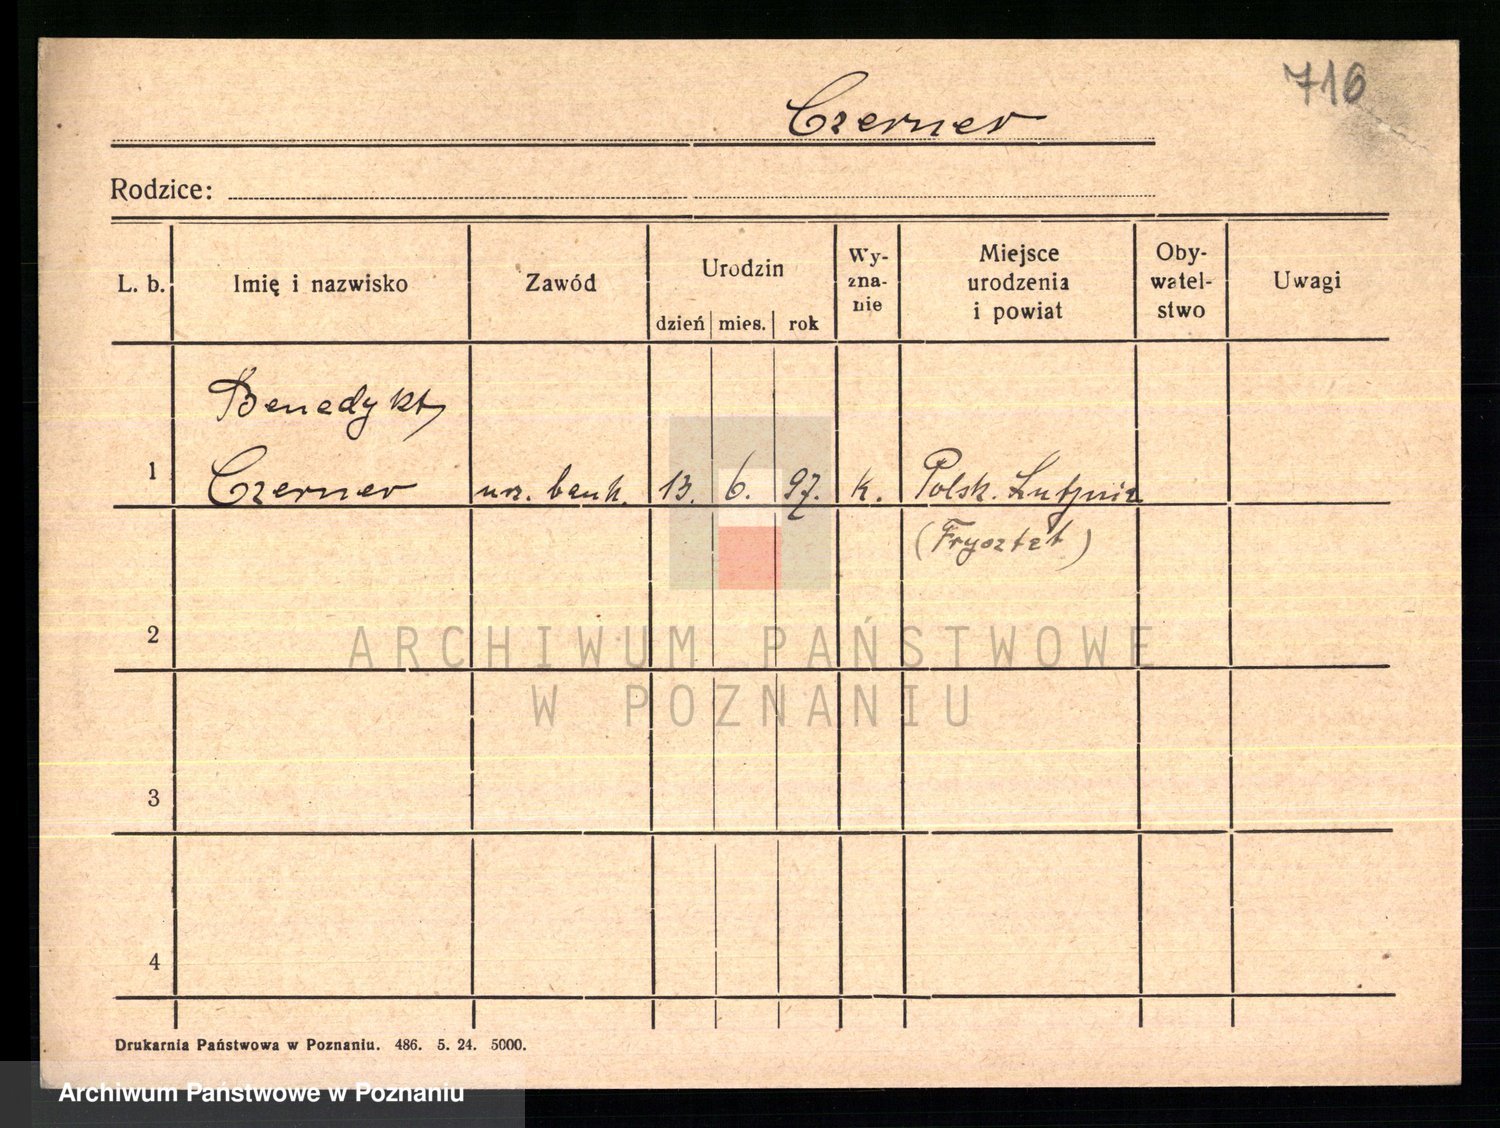 716
Czerner
Rodzice:
L. b. Imię i nazwisko Zawód Urodzin dzień mies. rok Wy-zna-nie Miejsce urodzenia i powiat Oby-watel-stwo Uwagi
Benedykt
1 Czerner urz. bank. 13. 6. 97. k. Polsk. Lutynia
(Frysztat)
2
ARCHIWUM PAŃSTWOWE
W POZNANIU
3
4
Drukarnia Państwowa w Poznaniu. 486. 5. 24. 5000.
Archiwum Państwowe w Poznaniu